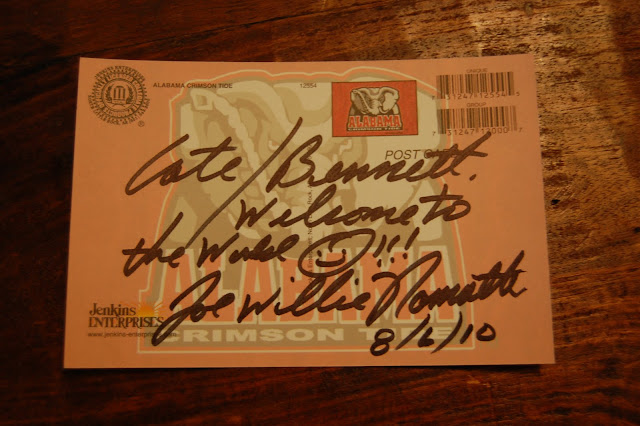 ALABAMA CRIMSON TIDE
12554
UNIQUE
GROUP
ALABAMA
POST
Cate/Bennett.
Welcome to
the World !!!
Joe Willie Namath
8/6/10
Jenkins
ENTERPRISES
www.jenkins-enterprises.com
ALABAMA
CRIMSON TIDE